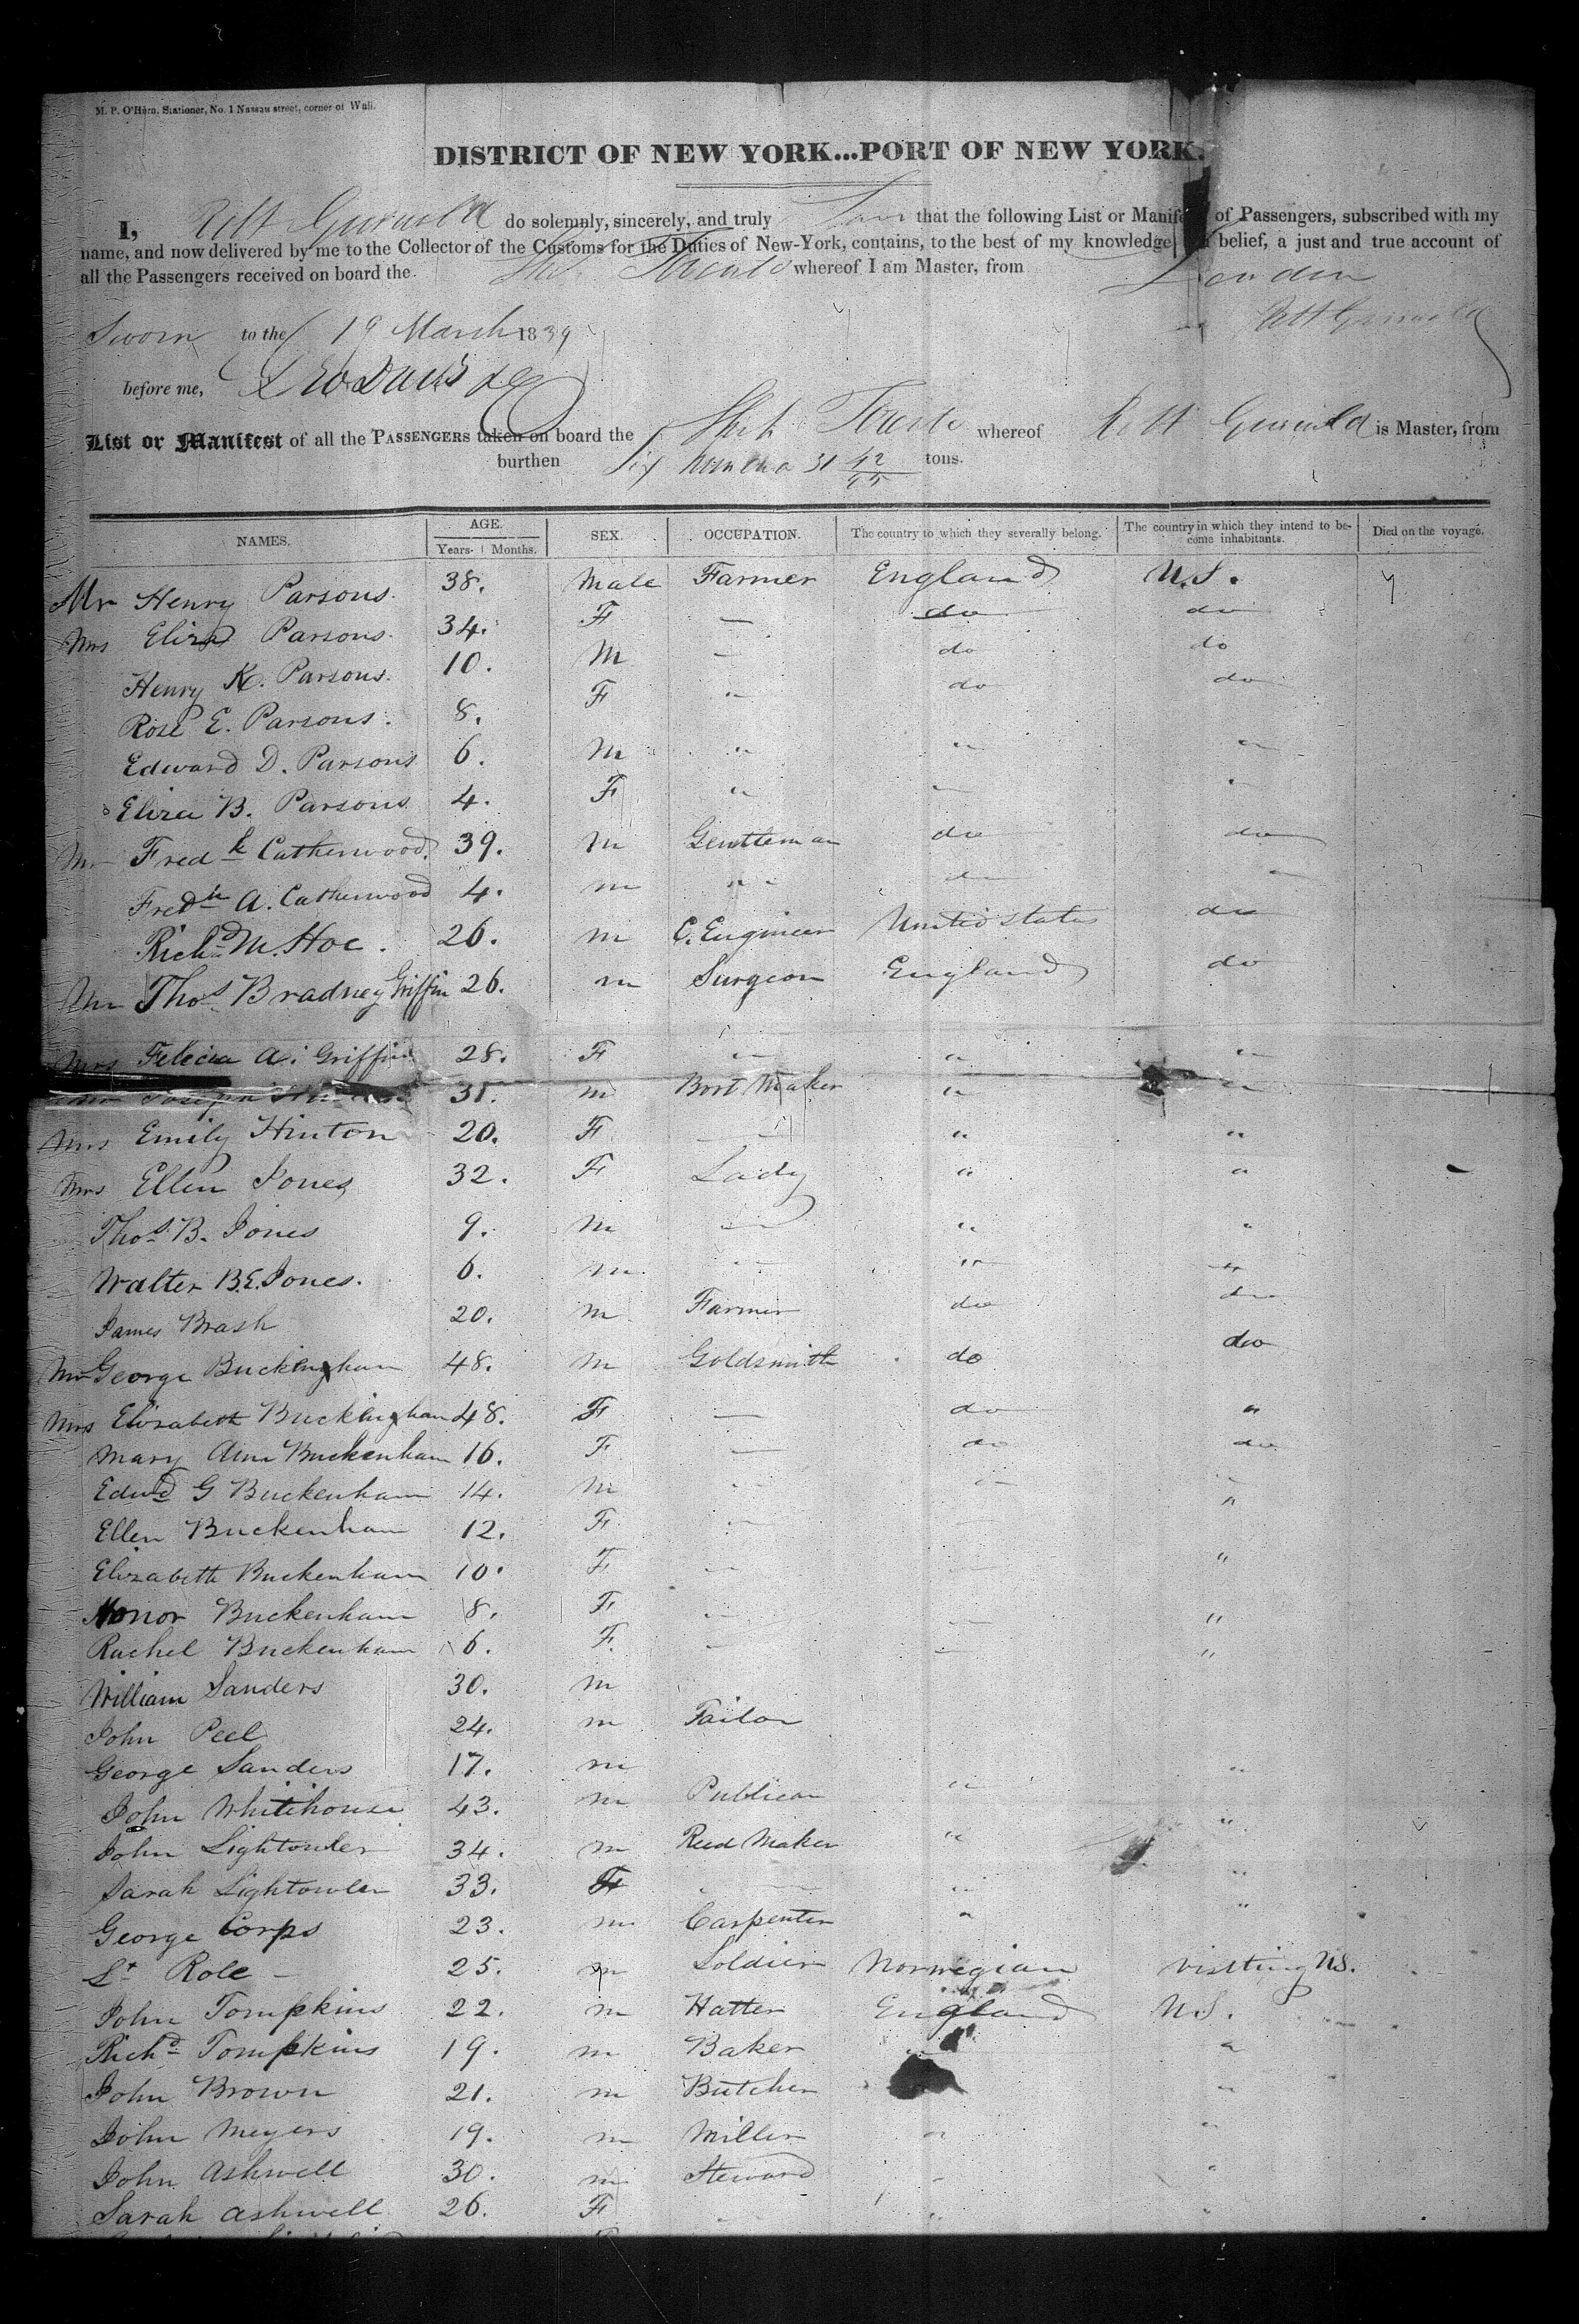 M. P. O'Hern, Stationer, No. 1 Nassau street, corner of Wall.
DISTRICT OF NEW YORK...PORT OF NEW YORK.
I, Robt Griswold do solemnly, sincerely, and truly that the following List or Manifest of Passengers, subscribed with my
name, and now delivered by me to the Collector of the Customs for the Duties of New-York, contains, to the best of my knowledge belief, a just and true account of
all the Passengers received on board the Ship whereof I am Master, from London
Robt Griswold
Sworn to the 19 March 1839
before me,
List or Manifest of all the PASSENGERS taken on board the Ship whereof Robt Griswold is Master, from
burthen Six hundred 31 42/95 tons.
NAMES. AGE. SEX. OCCUPATION. The country to which they severally belong. The country in which they intend to become inhabitants. Died on the voyage.
Years. Months.
Mr Henry Parsons. 38. Male Farmer England U.S.
Mrs Eliza Parsons. 34. F — do do
Henry K. Parsons. 10. M — do do
Rose E. Parsons. 8. F " do do
Edward D. Parsons 6. M " " "
Eliza B. Parsons 4. F " " "
Mr Fredk Catherwood. 39. M Gentleman do do
Fredk A. Catherwood 4. m " " do "
Richd M. Hoe. 26. m C. Engineer United States do
Mr Thos Bradney Griffin 26. m Surgeon England do
Mrs Felicia A. Griffin 28. F " " "
Joseph 31. m Boot Maker " "
Mrs Emily Hinton 20. F — " "
Mrs Ellen Jones 32. F Lady " "
Thos B. Jones 9. M — " "
Walter B.E. Jones. 6. m — " "
James Brash 20. m Farmer do do
Mr George Buckingham 48. m Goldsmith do do
Mrs Elizabeth Buckingham 48. F — do "
Mary Ann Buckenham 16. F — do do
Edwd G Buckenham 14. M " " "
Ellen Buckenham 12. F — — "
Elizabeth Buckenham 10. F — — "
Honor Buckenham 8. F — — "
Rachel Buckenham 6. F. — — "
William Sanders 30. m
John Peel 24. m Tailor
George Sanders 17. m "
John Whitehouse 43. m Publican " "
John Lightowler 34. m Reed Maker " "
Sarah Lightowler 33. F — " "
George Corps 23. m Carpenter "
Lt Role — 25. m Soldier Norwegian visitting U.S.
John Tompkins 22. m Hatter England U.S.
Richd Tompkins 19. m Baker "
John Brown 21. m Butcher "
John Meyers 19. m Miller " "
John Ashwell 30. m Steward " "
Sarah Ashwell 26. F " " "